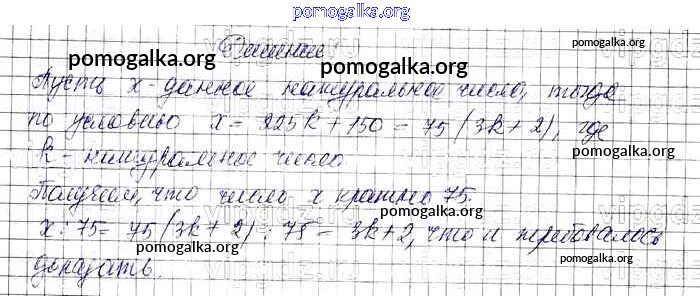 pomogalka.org
Решение
pomogalka.org
pomogalka.org
Пусть x - данное натуральное число, тогда
pomogalka.org
по условию x = 225k + 150 = 75 (3k + 2), где
k - натуральное число
pomogalka.org
Получаем, что число x кратно 75.
pomogalka.org
x : 75 = 75 (3k + 2) : 75 = 3k + 2, что и требовалось
pomogalka.org
доказать.
pomogalka.org